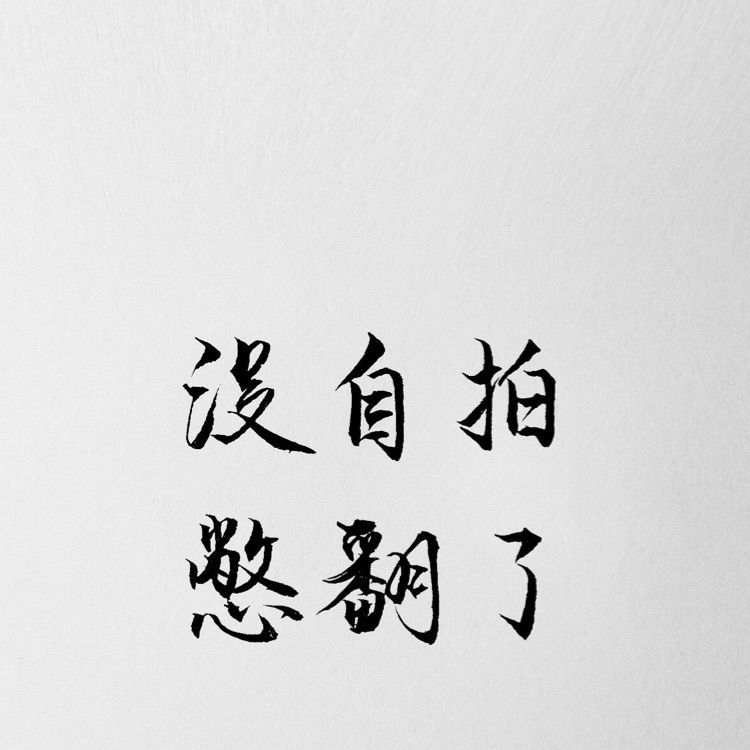 没自拍
憋翻了